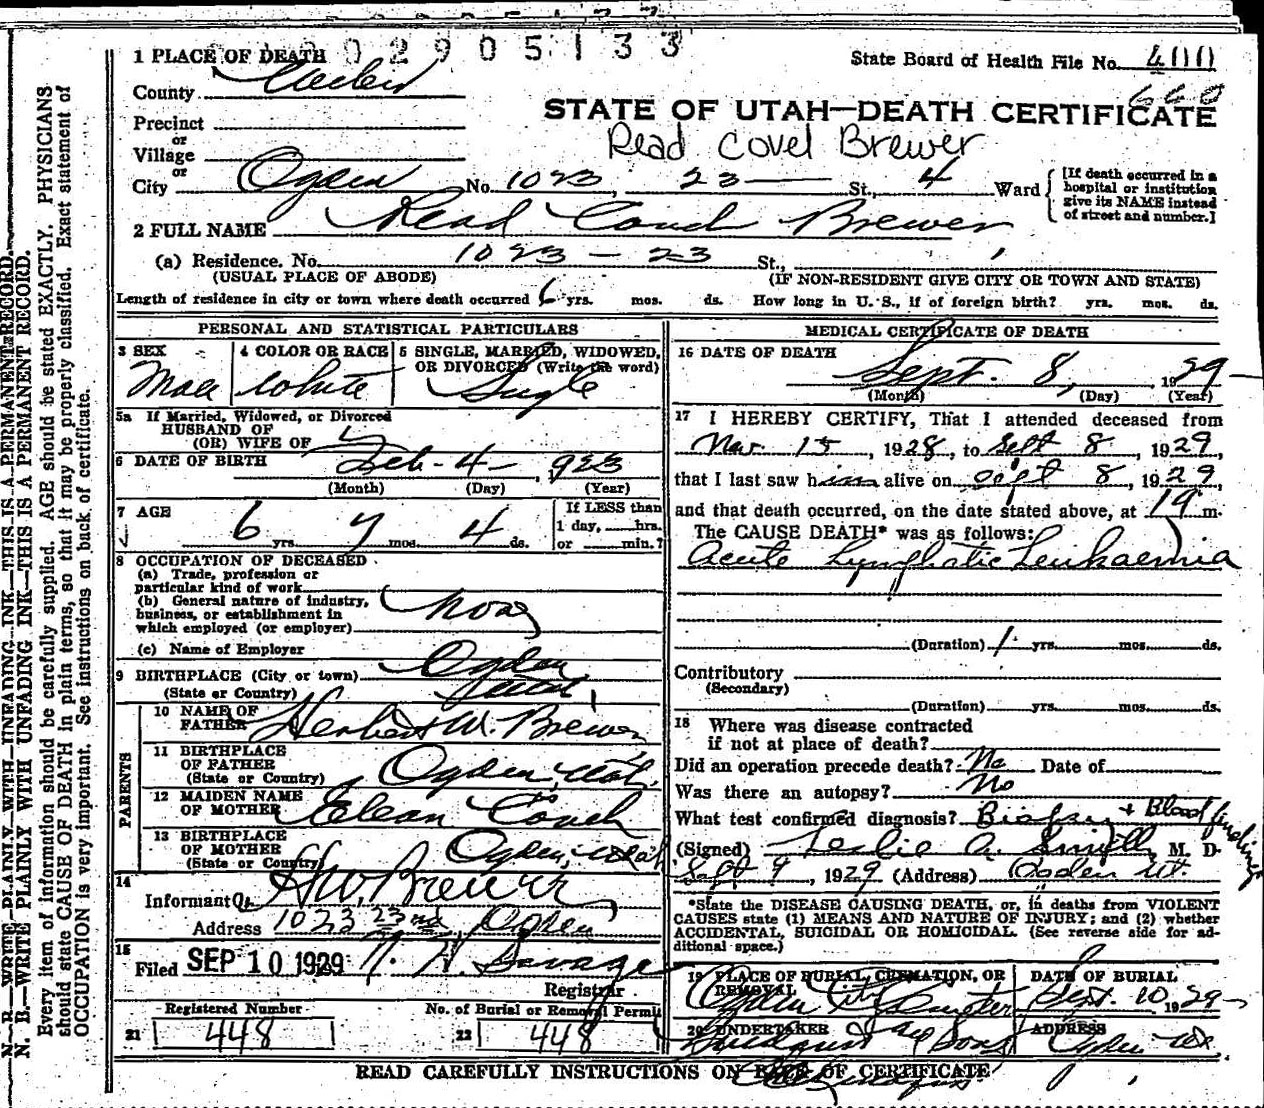 02905133
1 PLACE OF DEATH
State Board of Health File No. 400
County Weber
STATE OF UTAH—DEATH CERTIFICATE
Precinct
Read Covel Brewer
or
Village
or
City Ogden No. 1023, 23 St., 4 Ward
[If death occurred in a hospital or institution give its NAME instead of street and number.]
2 FULL NAME Read Couch Brewer
(a) Residence. No. 1023 - 23 St.,
(USUAL PLACE OF ABODE) (IF NON-RESIDENT GIVE CITY OR TOWN AND STATE)
Length of residence in city or town where death occurred 6 yrs. mos. ds. How long in U. S., if of foreign birth? yrs. mos. ds.
PERSONAL AND STATISTICAL PARTICULARS
3 SEX Male
4 COLOR OR RACE White
5 SINGLE, MARRIED, WIDOWED, OR DIVORCED (Write the word) Single
5a If Married, Widowed, or Divorced
HUSBAND OF
(OR) WIFE OF
6 DATE OF BIRTH Feb - 4 -, 1923
(Month) (Day) (Year)
7 AGE 6 yrs. 7 mos. 4 ds.
If LESS than
1 day, hrs.
or min.?
8 OCCUPATION OF DECEASED
(a) Trade, profession or
particular kind of work
(b) General nature of industry,
business, or establishment in
which employed (or employer)
(c) Name of Employer
9 BIRTHPLACE (City or town) Ogden
(State or Country) Utah
PARENTS
10 NAME OF FATHER Herbert W. Brewer
11 BIRTHPLACE
OF FATHER Ogden, Utah
(State or Country)
12 MAIDEN NAME
OF MOTHER Couch
13 BIRTHPLACE
OF MOTHER Ogden, Utah
(State or Country)
14
Informant H W Brewer
Address 1023 23rd Ogden
15
Filed SEP 10 1929 Savage
Registrar
Registered Number
21 448
No. of Burial or Removal Permit
22 448
MEDICAL CERTIFICATE OF DEATH
16 DATE OF DEATH
Sept. 8, 1929
(Month) (Day) (Year)
17 I HEREBY CERTIFY, That I attended deceased from
Mar. 15, 1928, to Sept 8, 1929,
that I last saw him alive on Sept 8, 1929,
and that death occurred, on the date stated above, at m.
The CAUSE DEATH* was as follows:
Acute Lymphatic Leukaemia
(Duration) 1 yrs. mos. ds.
Contributory
(Secondary)
(Duration) yrs. mos. ds.
18 Where was disease contracted
if not at place of death?
Did an operation precede death? No Date of
Was there an autopsy? No
What test confirmed diagnosis? Biopsy + Blood findings
(Signed) Leslie A. Smith M. D.
Sept 9, 1929 (Address) Ogden Ut.
*State the DISEASE CAUSING DEATH, or, in deaths from VIOLENT
CAUSES state (1) MEANS AND NATURE OF INJURY; and (2) whether
ACCIDENTAL, SUICIDAL OR HOMICIDAL. (See reverse side for ad-
ditional space.)
19 PLACE OF BURIAL, CREMATION, OR REMOVAL Ogden City
DATE OF BURIAL Sept. 10, 1929
20 UNDERTAKER Lindquist & Sons
ADDRESS Ogden Ut.
READ CAREFULLY INSTRUCTIONS ON BACK OF CERTIFICATE
N. B.—WRITE PLAINLY WITH UNFADING INK—THIS IS A PERMANENT RECORD.
N. B.—WRITE PLAINLY WITH UNFADING INK—THIS IS A PERMANENT RECORD.
Every item of information should be carefully supplied. AGE should be stated EXACTLY. PHYSICIANS
should state CAUSE OF DEATH in plain terms, so that it may be properly classified. Exact statement of
OCCUPATION is very important. See instructions on back of certificate.